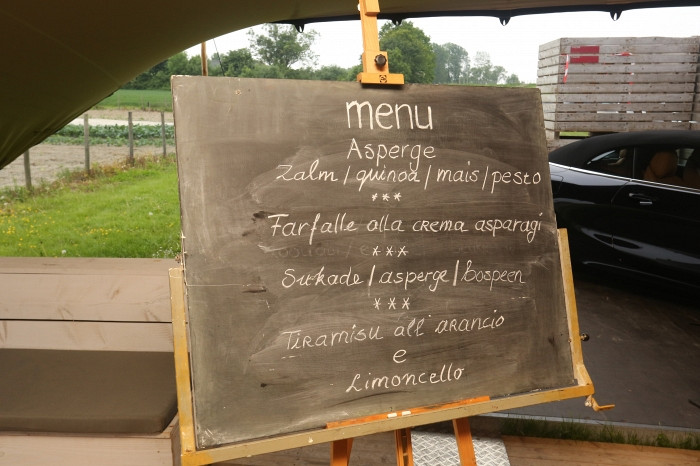 menu
Asperge
Zalm/quinoa/mais/pesto
***
Farfalle alla crema asparagi
***
Sukade/asperge/bospeen
***
Tiramisu all' arancio
e
Limoncello